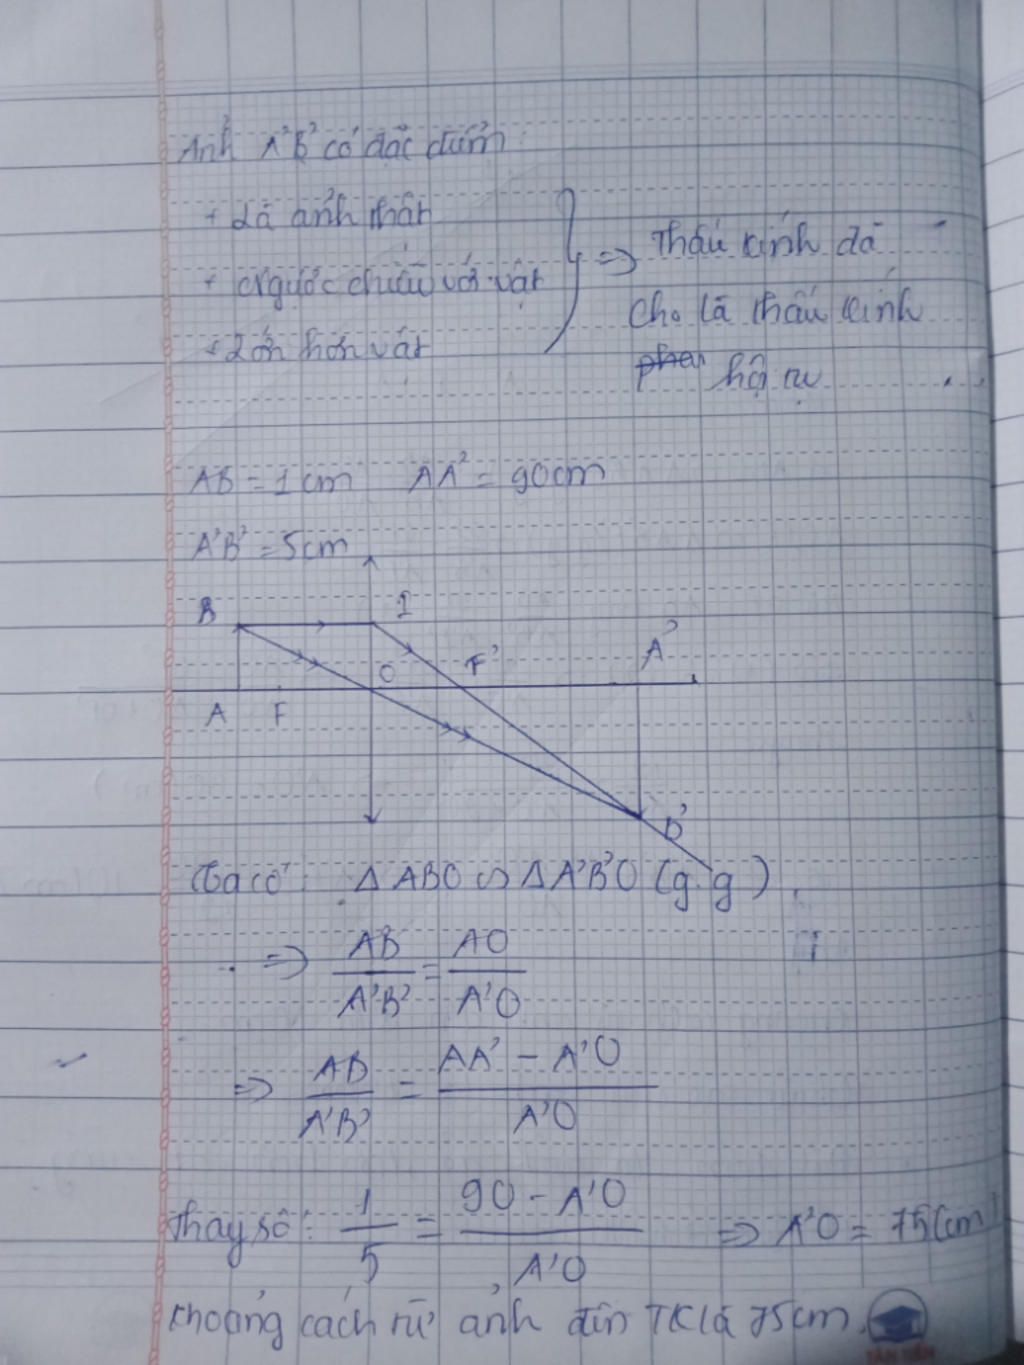 Ảnh A'B' có đặc điểm:
+ Là ảnh thật
+ Ngược chiều với vật
+ Lớn hơn vật
=> Thấu kính đã
cho là thấu kính
hội tụ
AB = 1cm AA' = 90cm
A'B' = 5cm
B I
O F' A'
A F
B'
Ta có: Δ ABO ∽ Δ A'B'O (g.g)
=> AB/A'B' = AO/A'O
=> AB/A'B' = AA' - A'O/A'O
Thay số: 1/5 = 90 - A'O/A'O => A'O = 75(cm)
Khoảng cách từ ảnh đến TK là 75cm.